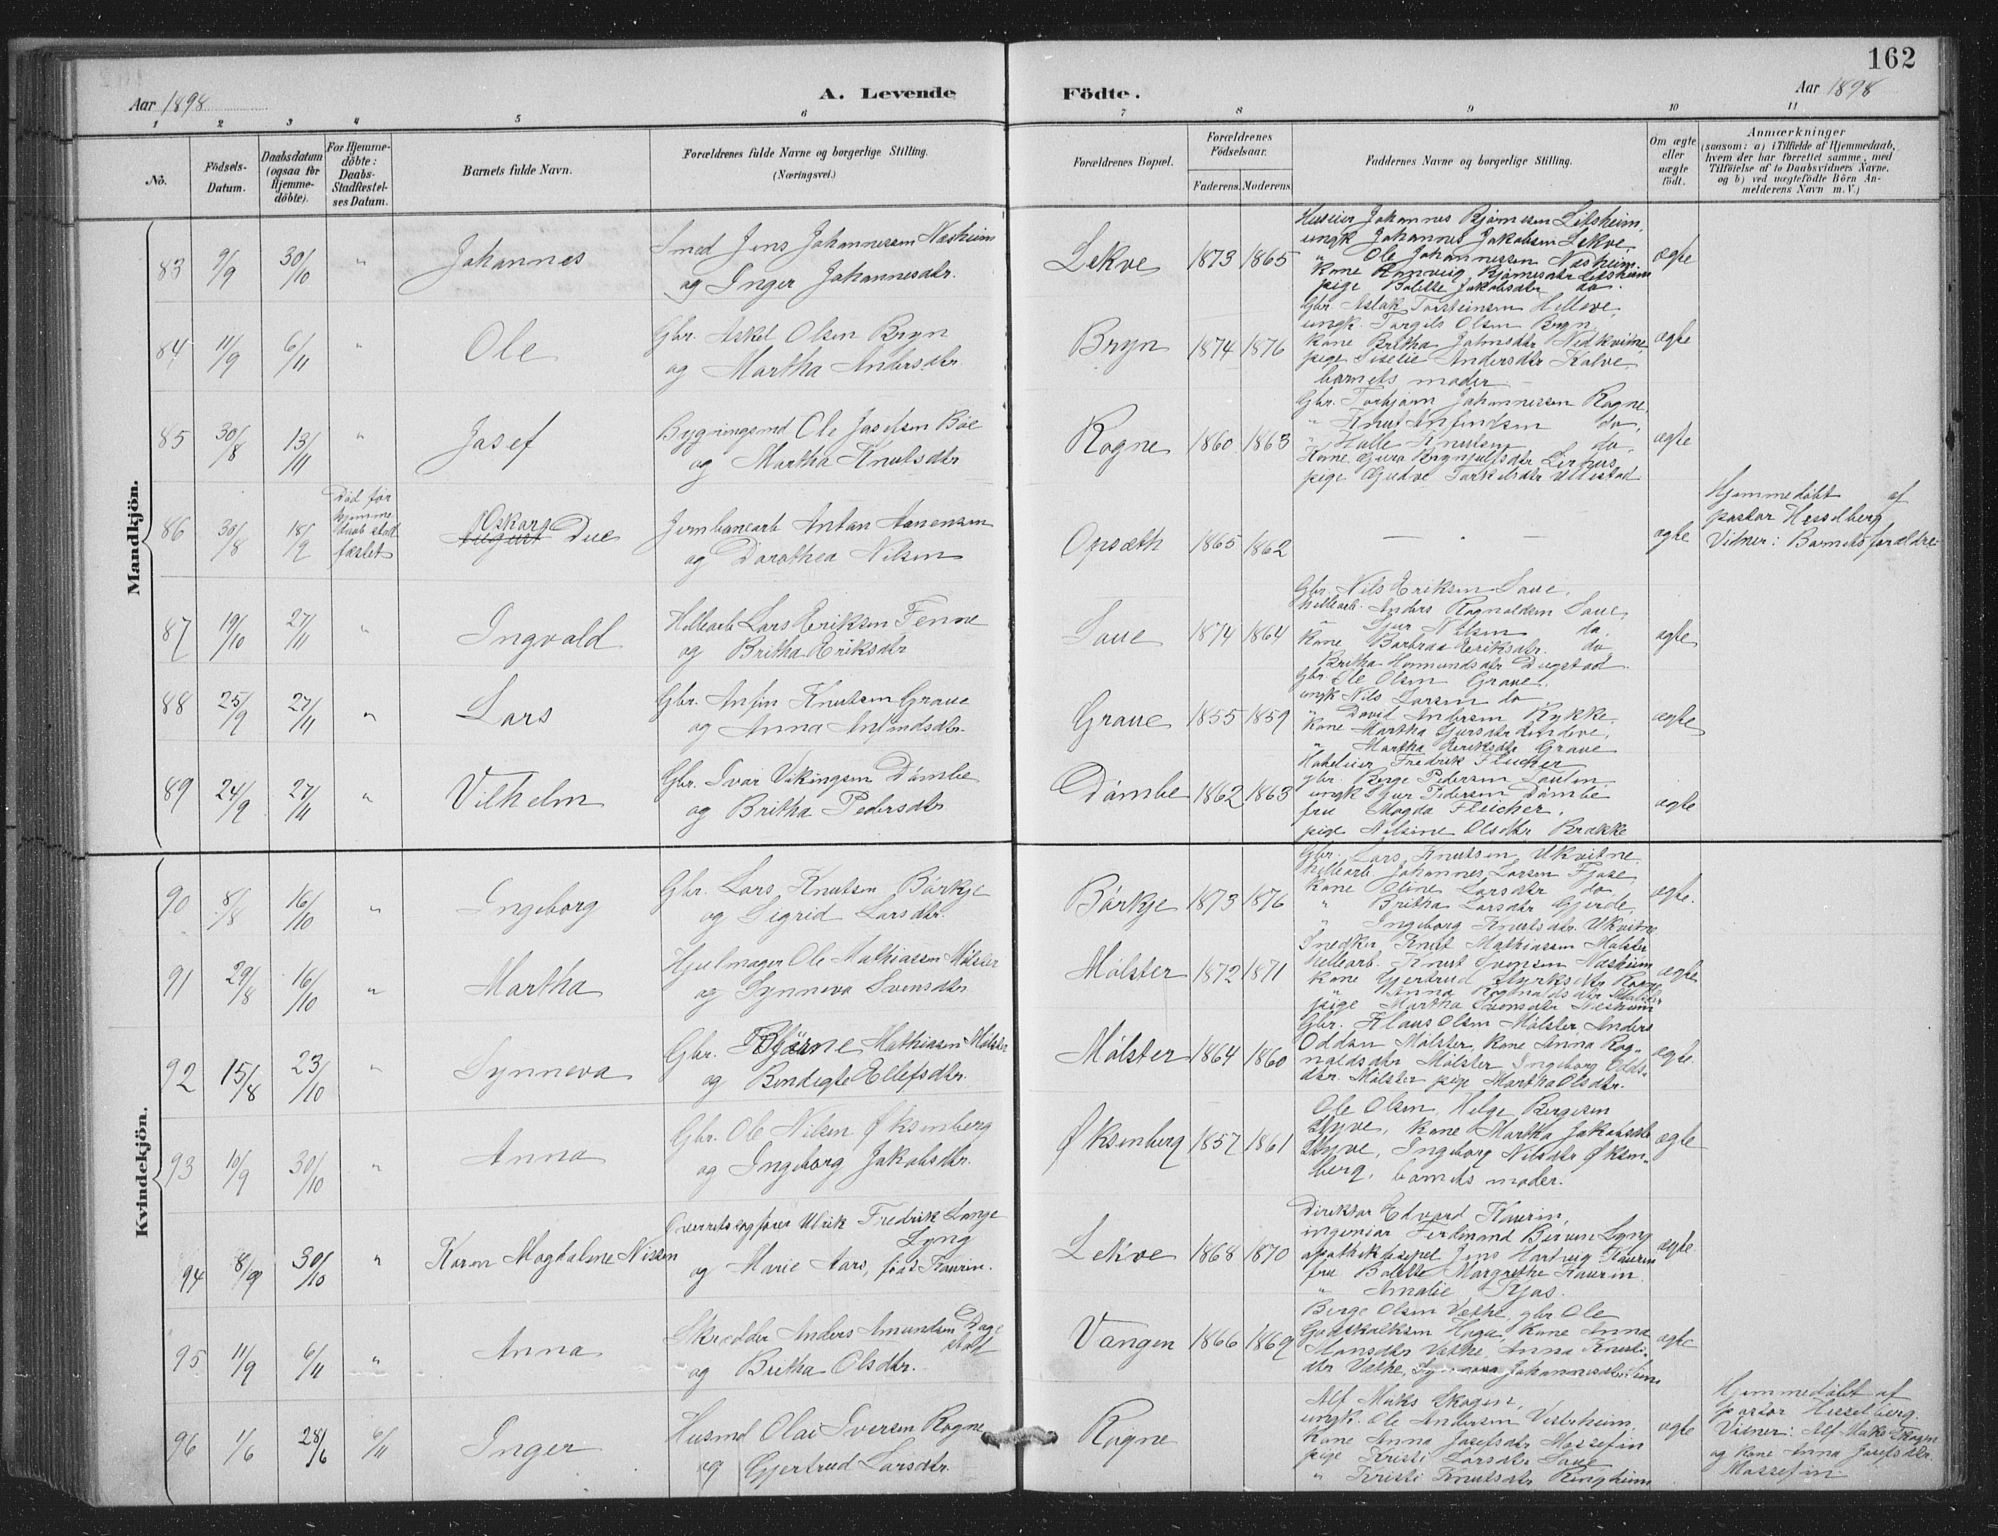 162
Aar 1898
A. Levende Födte.
Aar 1898
1 2 3 4 5 6 7 8 9 10 11
No.
Födsels-
Datum.
Daabsdatum
(ogsaa for
Hjemme-
döbte).
For Hjemme-
döbte:
Daabs-
Stadfæstel-
ses Datum.
Barnets fulde Navn.
Forældrenes fulde Navne og borgerlige Stilling.
(Næringsvei.)
Forældrenes Bopæl.
Forældrenes
Födselsaar.
Faderens. Moderens.
Faddernes Navne og borgerlige Stilling.
Om ægte
eller
uægte
født.
Anmærkninger
(saasom: a) i Tilfælde af Hjemmedaab,
hvem der har forrettet samme, med
Tilföielse af to Daabsvidners Navne,
og b) ved uægtefödte Börn An-
melderens Navn m. V.)
Mandkjön.
83 9/9 30/10 " Johannes
Smed Jens Johannessen Næsheim
og Inger Johannesdtr.
Lekve 1873 1865
Huseier Johannes Bjørnesen Lidsheim,
ungk Johannes Jakobsen Lekve,
" Ole Johannessen Næsheim.
Kone Ranveig Bjørnesdtr Lidsheim
pige Bolette Jakobsdtr do.
ægte
84 11/9 6/11 " Ole
Gbr. Askel Olsen Bryn
og Martha Andersdtr.
Bryn 1874 1876
Gbr. Aslak Torsteinsen Helleve
ungk. Torgils Olsen Bryn,
Kone Britha Nedkvitne,
pige Andersdtr Kolve
barnets moder
ægte
85 30/8 13/11 " Josef
Bygningsmd Ole Josefsen Bøe
og Martha Knutsdtr
Rogne 1860 1863
Gbr. Torbjørn Johannessen Rogne,
" Knut Anfindsen do,
" Halle Knutsen do,
Kone Gura Brynjulfsdtr
pige Torkelsdtr Ullestad
ægte
86 30/8 18/9
Død før
hjemme
daab stad
fæstet
Oskar
August Due
Jernbanearb Anton Aanensen
og Dorothea Nilsen
Opsæth 1865 1862
— - —
ægte
Hjemmedøbt af
pastor Hesselberg
Vidner: Barnets forældre
87 19/10 27/11 " Ingvald
Hellearb Lars Eriksen Fenne
og Britha Eriksdtr
Saue 1874 1864
Gbr. Nils Eriksen Saue,
Hellearb. Anders Rognaldsen Saue,
" Sjur Nilsen do.
Kone Barbraa Eriksdtr. do,
Britha Hermundsdtr Dugstad
ægte
88 25/9 27/11 " Lars
Gbr. Anfin Knutsen Grove
og Anna Anfindsdtr.
Grove 1855 1859
Gbr. Ole Olsen Grove,
ungk Nils Larsen do
" David Andersen Rykke,
Kone Martha Sjursdtr Lindeve,
" Martha Eriksdtr Grove
ægte
89 24/9 27/11 " Vilhelm
Gbr. Ivar Vikingsen Dømbe
og Britha Pedersdtr
Dømbe 1862 1863
Hoteleier Fredrik Fleicher
gbr. Berge Pedersen
ungk Sjur Pedersen Dømbe
fru Magda Fleicher,
pige Nilsine Olsdtr Brække
ægte
Kvindekjön.
90 8/8 16/10 " Ingeborg
Gbr. Lars Knutsen Børkje
og Sigrid Larsdtr.
Børkje 1873 1876
Gbr. Lars Knutsen Ukvitne,
Hellearb Johannes Larsen Fjose,
Kone Oline Larsdtr do
" Britha Larsdtr Gjerde,
" Ingeborg Knutsdtr. Ukvitne
ægte.
91 29/8 16/10 " Martha
Hjulmager Ole Mathiassen Mølster
og Synneva Svensdtr
Mølster 1872 1871
Snedker Knut Mathiassen Mølster
Hellearb. Knut Svensen Næsheim
Kone Gjertrud Styrksdtr Rogne
" Anna Rognaldsdtr Mølster
pige Martha Svensdtr Næsheim
ægte
92 15/8 23/10 " Synneva
Gbr. Bjørne Mathiassen Mølster
og Bendigte Ellefsdtr.
Mølster 1864 1860
Gbr. Klaus Olsen Mølster, Anders
Oddsen Mølster, Kone Anna Rog-
naldsdtr Mølster Ingeborg Odds-
dtr. Mølster pige Martha Olsdtr.
ægte
93 10/9 30/10 " Anna
Gbr. Ole Nilsen Øksenberg
og Ingeborg Jakobsdtr.
Øksenberg 1857 1861
Ole Olsen, Helge Bergesen
Styve, Kone Martha Jakobsdtr
Styve, Ingeborg Nilsdtr Øksen-
berg, barnets moder.
ægte
94 8/9 30/10 " Karen Magdalene Nissen
Overretssagfører Ulrik Fredrik Lange
Lyng
og Marie Aars, født Kaurin.
Lekve 1868 1870
Direktør Edvard Kaurin,
ingeniør Ferdinand Lyng
apothekdisipel Jens Hartvig Kaurin
fru Bolette Margrethe Kaurin
" Amalie
ægte
95 11/9 6/11 " Anna
Skrædder Anders Amundsen Dage
stad
og Britha Olsdtr.
Vangen 1866 1869
Berge Olsen Væthe, gbr. Ole
Godskalksen Haga, Kone Anna
Monsdtr Væthe, Anna Knuts-
dtr Væthe, Johannesdtr
ægte
96 1/6 28/6 6/11 Inger
Husmd Olai Iversen Rogne
og Gjertrud Larsdtr.
Rogne
Alf Muks Skogen,
ungk. Ole Andersen Vestrheim,
Kone Anna Josefsdtr Mossefin
pige Kristi Larsdtr Saue
" Kristi Knutsdtr Ringheim
ægte
Hjemmedøbt af
pastor Hesselberg.
Vidner: Alf Muks Skogen
og Kone Anna Josefsdtr.
Mossefin